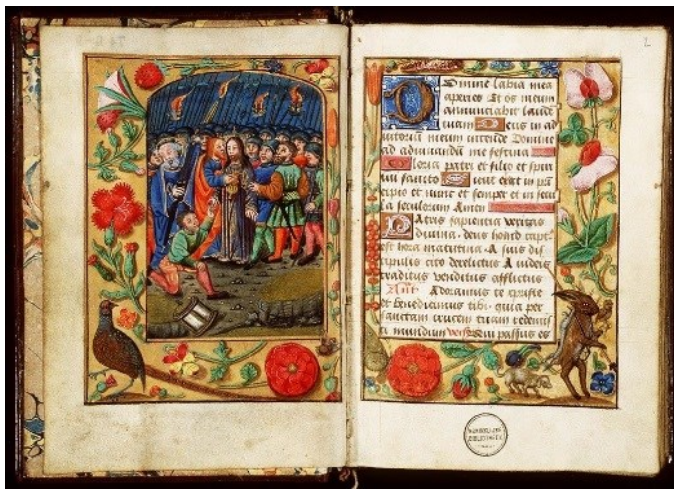 2
Domine labia mea
aperies Et os meum
annunciabit laudē
tuam Deus in ad
iutoriū meum intende Domine
ad adiuuandū me festina
Gloria patri et filio et spiri
tui sancto Sicut erat in prī
cipio et nunc et semper et in secu
la seculorum Amen
Patris sapientia veritas
diuina deus homo capt⁹
est hora matutina A suis dis
cipulis cito derelictus A iudeis
traditus venditus afflictus
Añ Adoramus te xpriste
et benedicimus tibi quia per
sanctam crucem tuam redemisti
mundum vers Qui passus es